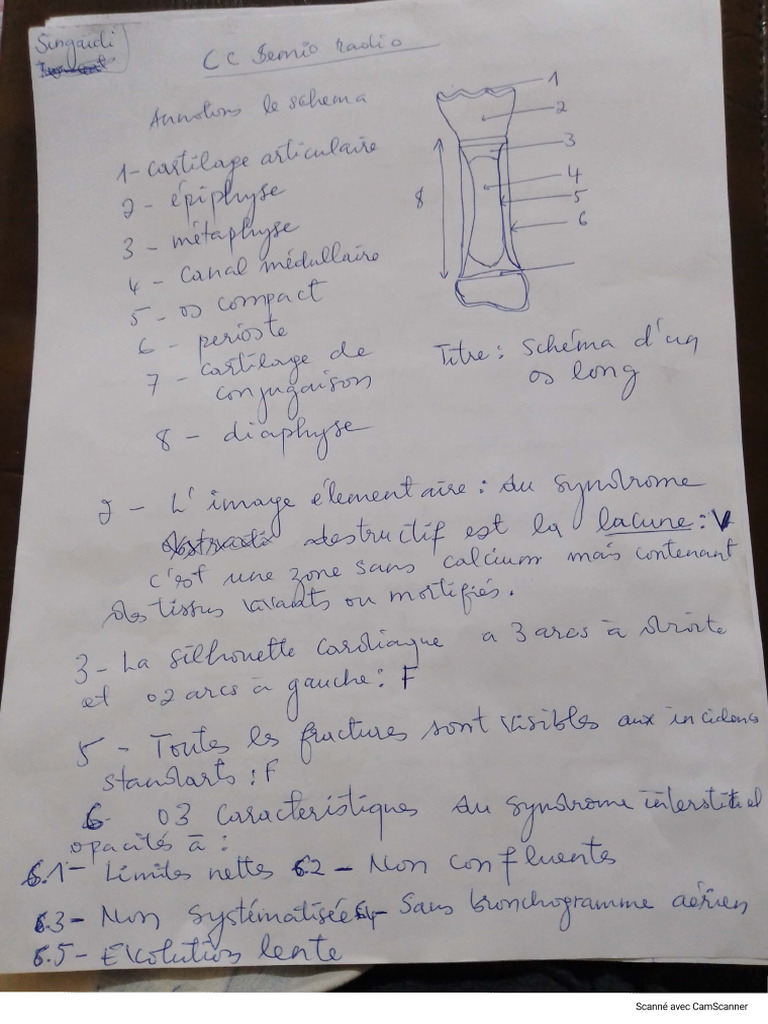 Singaidi
CC Semio radio
Annotons le schema
1- cartilage articulaire
2 - épiphyse
3 - métaphyse
4 - Canal médullaire
5 - os compact
6 - perioste
7 - cartilage de
conjugaison
8 - diaphyse
1
2
3
4
5
6
8
Titre : Schéma d'un
os long
2 - L'image élementaire : du Syndrome
destructif est la lacune : V
c'est une zone sans calcium mais contenant
des tissus vivants ou mortifiés.
3 - La silhouette cardiaque a 3 arcs à droite
et 02 arcs à gauche : F
5 - Toutes les fractures sont visibles aux incidences
standarts : F
6- 03 caracteristiques du syndrome interstitiel
opacités à :
6.1- Limites nettes 6.2 - Non confluentes
6.3- Non systématisées 6.4- Sans bronchogramme aérien
6.5- Evolution lente
Scanné avec CamScanner